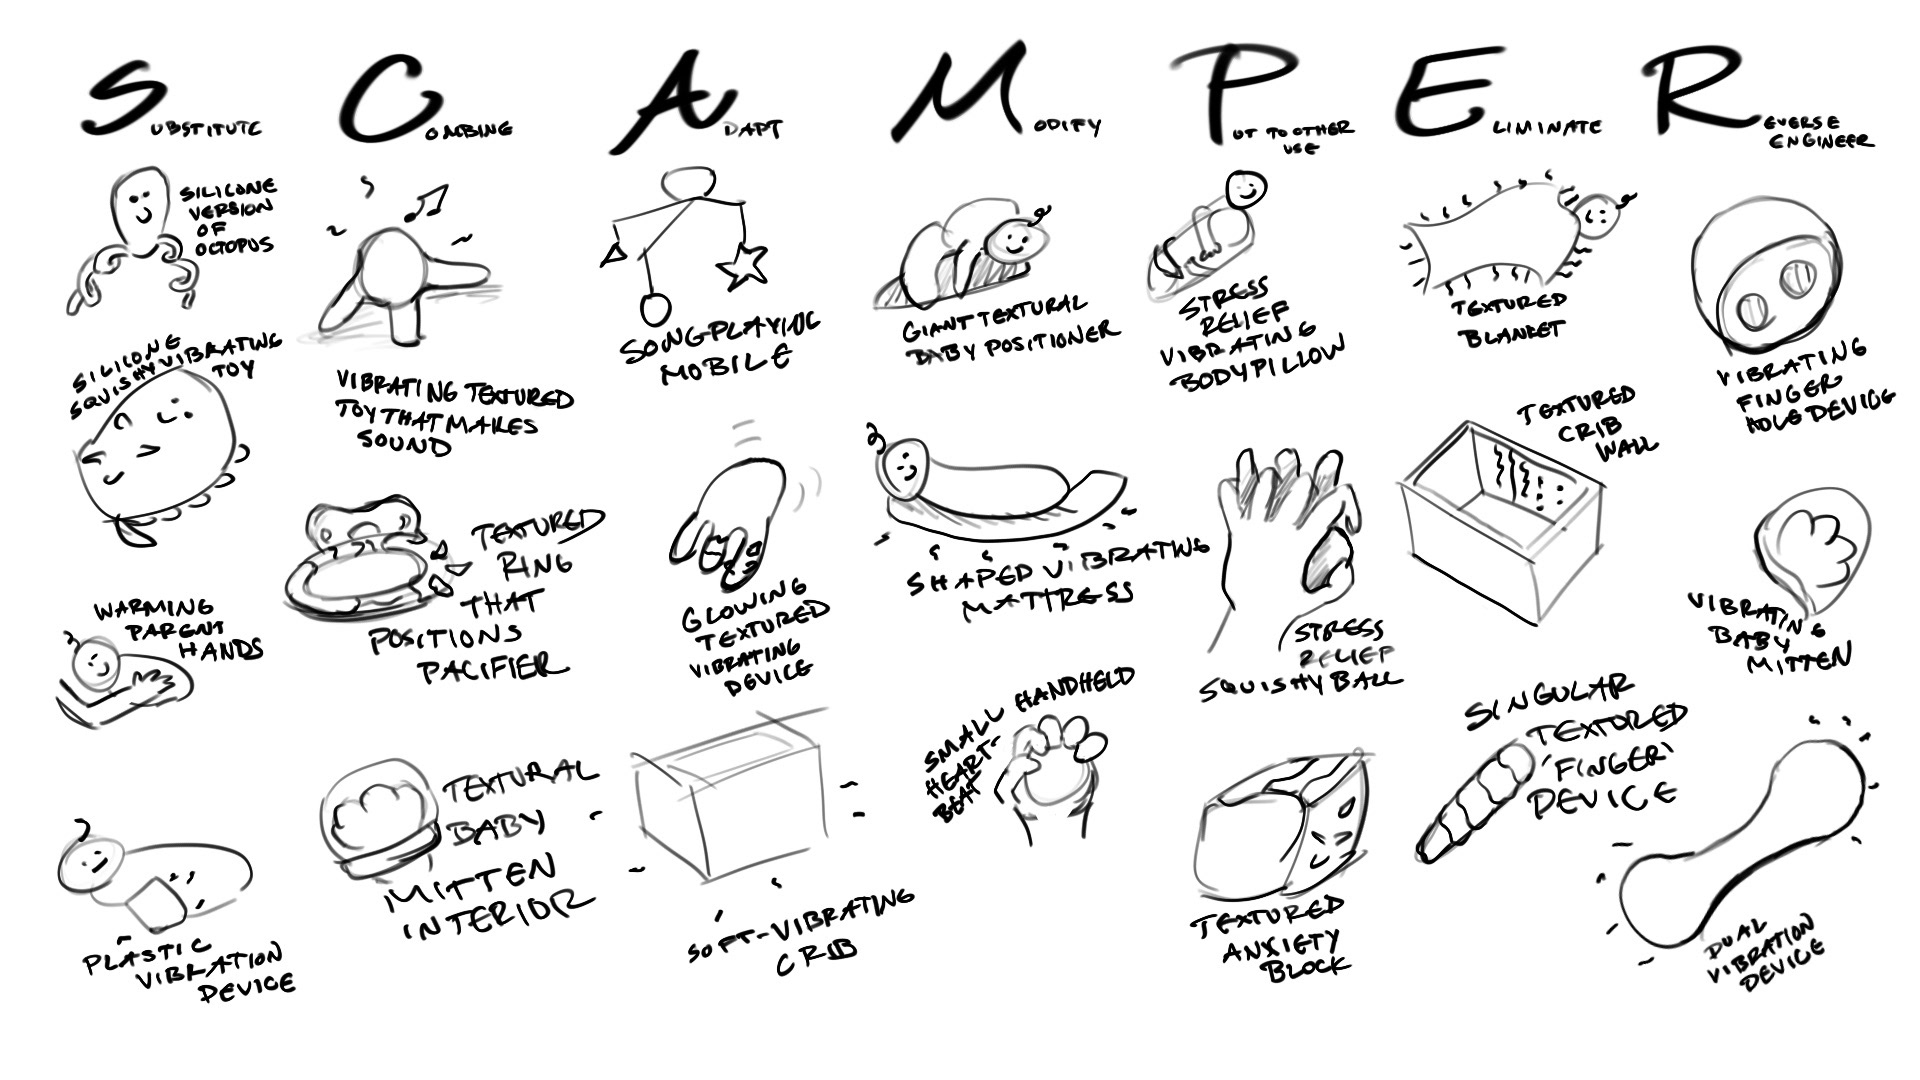 SUBSTITUTE
SILICONE
VERSION
OF
OCTOPUS
SILICONE
SQUISHY VIBRATING
TOY
WARMING
PARENT
HANDS
PLASTIC
VIBRATION
DEVICE
COMBINE
VIBRATING TEXTURED
TOY THAT MAKES
SOUND
TEXTURED
RING
THAT
POSITIONS
PACIFIER
TEXTURAL
BABY
MITTEN
INTERIOR
ADAPT
SONG-PLAYING
MOBILE
GLOWING
TEXTURED
VIBRATING
DEVICE
SOFT-VIBRATING
CRIB
MODIFY
GIANT TEXTURAL
BABY POSITIONER
SHAPED VIBRATING
MATTRESS
SMALL HANDHELD
HEART-
BEAT
PUT TO OTHER
USE
STRESS
RELIEF
VIBRATING
BODY PILLOW
STRESS
RELIEF
SQUISHY BALL
TEXTURED
ANXIETY
BLOCK
ELIMINATE
TEXTURED
BLANKET
TEXTURED
CRIB
WALL
SINGULAR
TEXTURED
'FINGER'
DEVICE
REVERSE
ENGINEER
VIBRATING
FINGER
HOLE DEVICE
VIBRATING
BABY
MITTEN
DUAL
VIBRATION
DEVICE